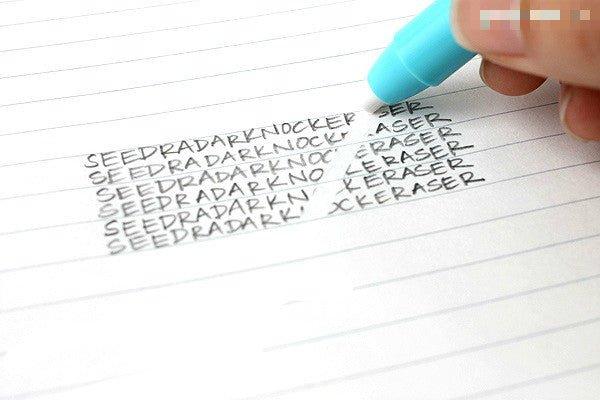 SEEDRADARKNOCKER SER
SEEDRADARKNOCK ASER
SEEDRADARKNOC ERASER
SEEDRADARKNO KERASER
SEEDRADARKN KERASER
SEEDRADARK CKERASER